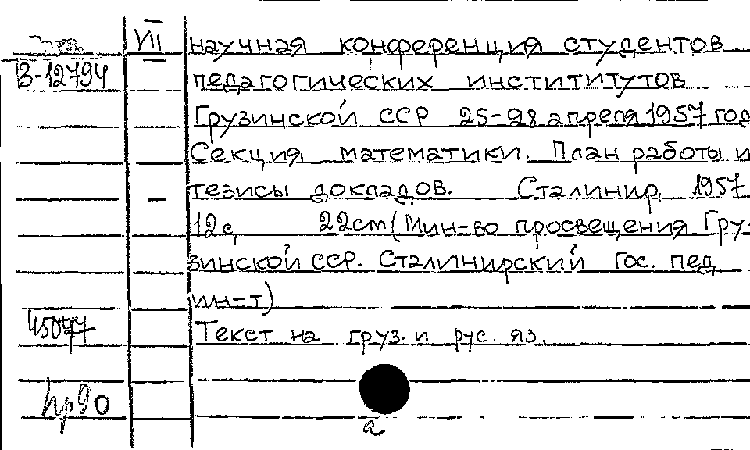 VII научная конференция студентов
В-12794 педагогических институтутов
Грузинской ССР 25-28 апреля 1957 год
Секция математики. План работы и
тезисы докладов. Сталинир, 1957
12с, 22cm (Мин-во просвещения Гру-
зинской ССР. Сталинирский гос. пед
ин-т)
45077 Текст на груз. и рус. яз.
а